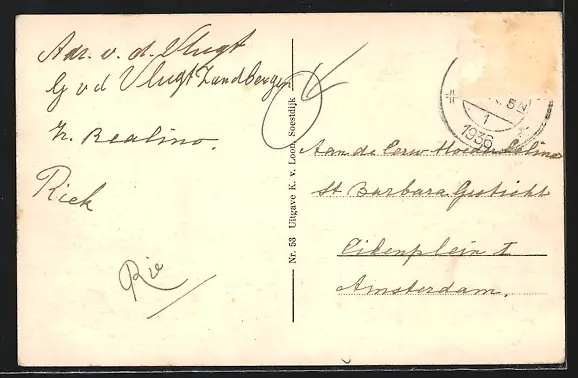 Adr. v. d. Vlugt
G v d Vlugt Zandbergen
Zr. Realino.
Riek
Rie
Nr. 53 Uitgave K. v. Loon, Soestdijk
5 N
1
1936
Aan de Eerw Moeder
St Barbara Gesticht
Eikenplein 1
Amsterdam.